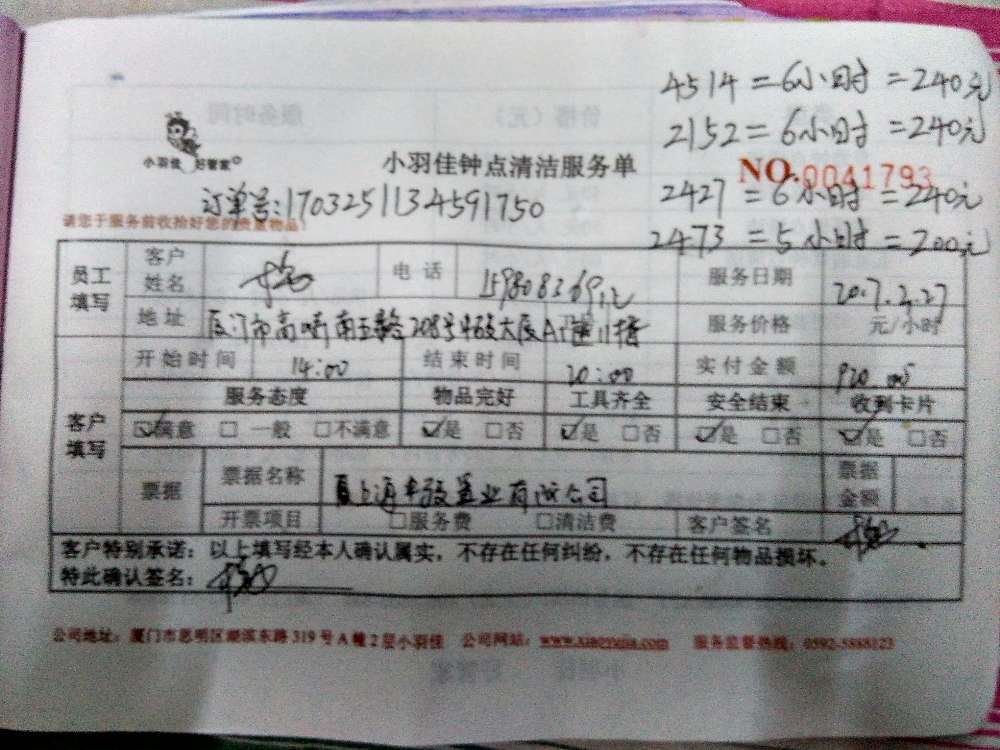 4514=6小时=240元
2152=6小时=240元
小羽佳 好管家
小羽佳钟点清洁服务单
NO.0041793
订单号:1703251134591750
2427=6小时=240元
请您于服务前收拾好您的贵重物品!
2473=5小时=200元
员工填写 客户姓名 电话 服务日期
地址 厦门市 208号 大厦A 服务价格 元/小时
客户填写 开始时间 14:00 结束时间 20:00 实付金额 920
服务态度 物品完好 工具齐全 安全结束 收到卡片
☑满意 □一般 □不满意 ☑是 □否 ☑是 □否 ☑是 □否 ☑是 □否
票据 票据名称 置业有限公司 票据金额
开票项目 □服务费 □清洁费 客户签名
客户特别承诺：以上填写经本人确认属实，不存在任何纠纷，不存在任何物品损坏。
特此确认签名：
公司地址：厦门市思明区湖滨东路319号A幢2层小羽佳 公司网站： 服务监督热线：0592-5888123